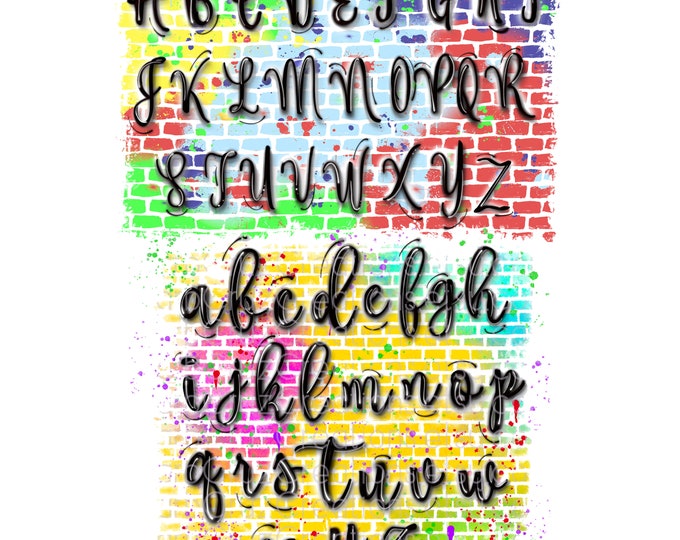 A B C D E F G H I
J K L M N O P Q R
S T U V W X Y Z
a b c d e f g h
i j k l m n o p
q r s t u v w